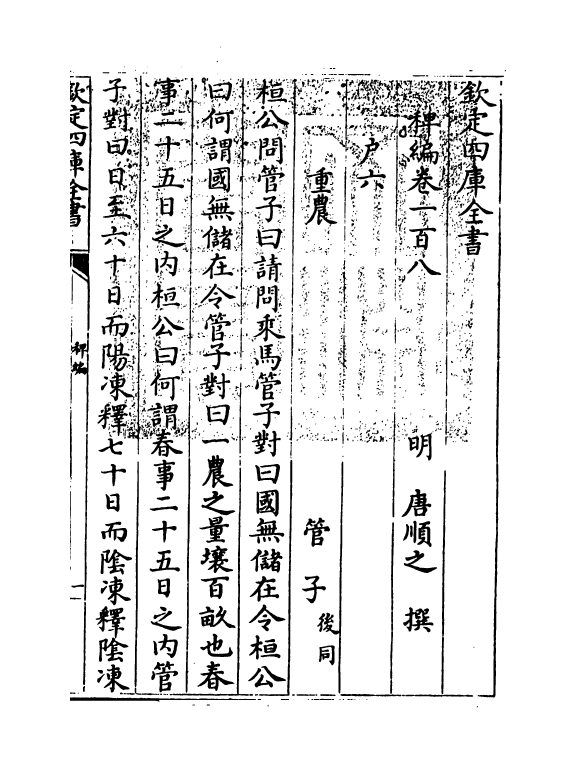 欽定四庫全書
稗編卷一百八
明 唐順之 撰
户六
重農 管子後同
桓公問管子曰請問乘馬管子對曰國無儲在令桓公
曰何謂國無儲在令管子對曰一農之量壤百畝也春
事二十五日之内桓公曰何謂春事二十五日之内管
子對曰日至六十日而陽凍釋七十日而陰凍釋陰凍
欽定四庫全書
稗編
一